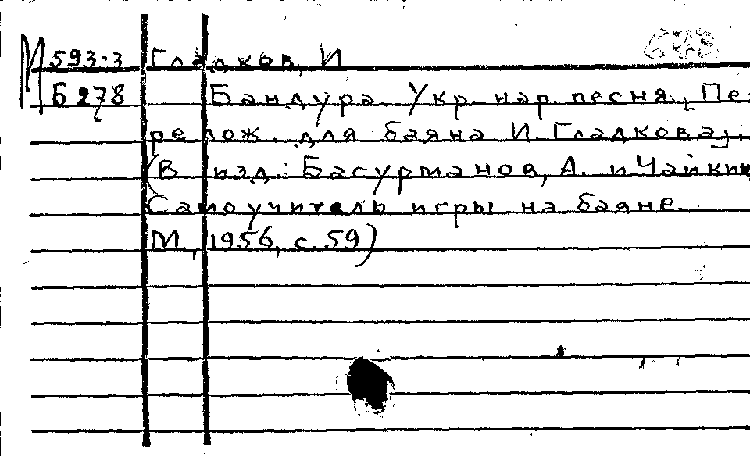 М 593-3 Гладков, И
Б 278 Бандура. Укр. нар. песня, Пе-
релож. для баяна И. Гладкова,.
(В изд.: Басурманов, А. и Чайкин
Самоучитель игры на баяне.
М., 1956, с. 59)